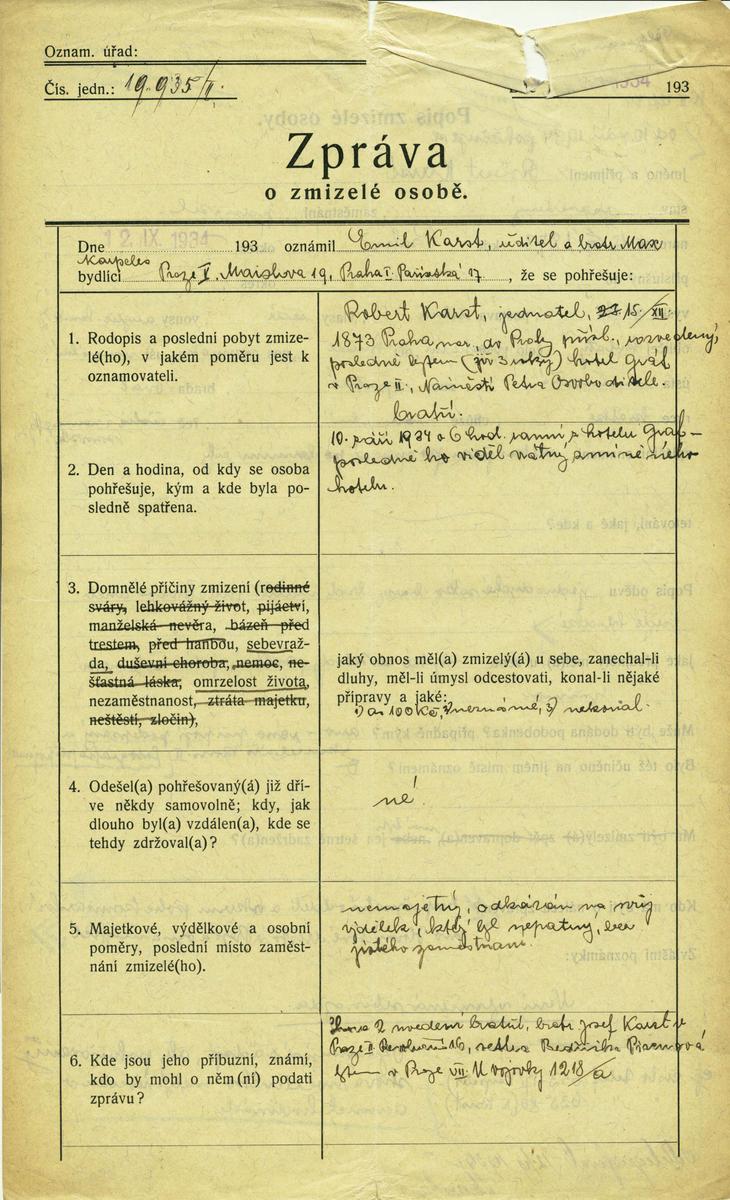 Oznam. úřad:
Čís. jedn.: 19.935/II. 1934 193
Zpráva
o zmizelé osobě.
Dne 12. IX. 1934 193 oznámil Emil Karst, ředitel a bratr Max
Karpeles
bydlící Praze V. Maislova 19, Praha I. Pařížská 17, že se pohřešuje:
1. Rodopis a poslední pobyt zmize-
lé(ho), v jakém poměru jest k
oznamovateli.
Robert Karst, jednatel, 15/XII.
1873 Praha nar., do Prahy přísl., rozvedený,
posledně bytem (již 3 roky) hotel Gráf
v Praze II., Náměstí Petra Osvoboditele.
bratři.
2. Den a hodina, od kdy se osoba
pohřešuje, kým a kde byla po-
sledně spatřena.
10. září 1934 o 6 hod. ranní z hotelu Graf –
posledně ho viděl vrátný
hotelu.
3. Domnělé příčiny zmizení (rodinné
sváry, lehkovážný život, pijáctví,
manželská nevěra, bázeň před
trestem, před hanbou, sebevraž-
da, duševní choroba, nemoc, ne-
šťastná láska, omrzelost života,
nezaměstnanost, ztráta majetku,
neštěstí, zločin),
jaký obnos měl(a) zmizelý(á) u sebe, zanechal-li
dluhy, měl-li úmysl odcestovati, konal-li nějaké
přípravy a jaké:
1) as 100 Kč, 2) neznámé, 3) nekonal.
4. Odešel(a) pohřešovaný(á) již dří-
ve někdy samovolně; kdy, jak
dlouho byl(a) vzdálen(a), kde se
tehdy zdržoval(a)?
né.
5. Majetkové, výdělkové a osobní
poměry, poslední místo zaměst-
nání zmizelé(ho).
nemajetný, odkázán na svůj
výdělek, který byl nepatrný, bez
jistého zaměstnání.
6. Kde jsou jeho příbuzní, známí,
kdo by mohl o něm(ní) podati
zprávu?
2 uvedení bratři, bratr Josef Karst v
Praze II Revoluční 16, sestra Bedřiška
bytem v Praze VII. U vozovky 1218/a